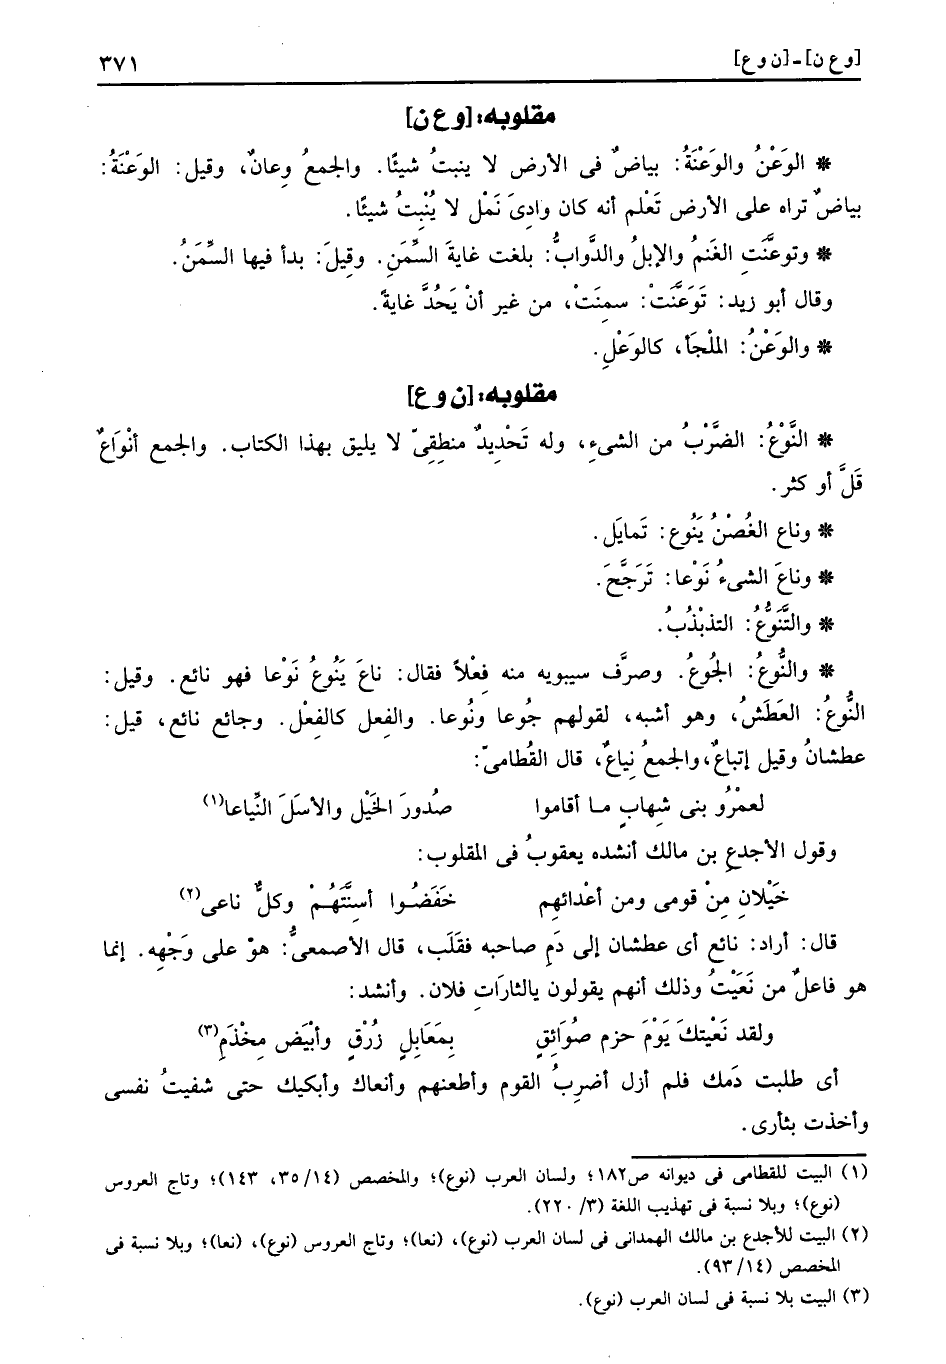 [و ع ن] - [ن و ع] ٣٧١
مقلوبه: [و ع ن]
* الوَعْنُ والوَعْنَةُ: بياضٌ فى الأرض لا ينبتُ شيئًا. والجمعُ وِعانٌ، وقيل: الوَعْنَةُ:
بياضٌ تراه على الأرض تَعْلم أنه كان وادِىَ نَمْل لا يُنْبِتُ شيئًا.
* وتوعَّنَتِ الغَنمُ والإبلُ والدَّوابُّ: بلغت غايةَ السِّمَنِ. وقِيلَ: بدأ فيها السِّمَنُ.
وقال أبو زيد: تَوَعَّنَتْ: سمِنَتْ، من غير أنْ يَحُدَّ غايةً.
* والوَعْنُ: الملْجَأ، كالوَعْلِ.
مقلوبه: [ن و ع]
* النَّوْعُ: الضَّرْبُ من الشىءِ، وله تَحْدِيدٌ منطقِىّ لا يليق بهذا الكتاب. والجمع أنْوَاعٌ
قَلَّ أو كثر.
* وناع الغُصْنُ يَنُوع: تَمايَل.
* وناعَ الشىءُ نَوْعا: تَرَجَّحَ.
* والتَّنَوُّعُ: التذبْذُبُ.
* والنُّوعُ: الجُوعُ. وصرَّف سيبويه منه فِعْلاً فقال: ناعَ يَنُوعُ نَوْعا فهو نائع. وقيل:
النُّوعُ: العَطَشُ، وهو أشبه، لقولهم جُوعا ونُوعا. والفعل كالفِعْل. وجائع نائع، قيل:
عطشانُ وقيل إتباعٌ، والجمعُ نِياعٌ، قال القُطامىّ:
لعمْرُو بنى شِهابٍ مـا أقاموا صُدورَ الخَيْل والأسَلَ النِّياعا(١)
وقول الأجدعِ بن مالك أنشده يعقوبُ فى المقلوب:
خَيْلانِ مِنْ قومى ومن أعْدائهِم خَفَضُـوا أسِنَّتَهُـمْ وكلٌّ ناعى(٢)
قال: أراد: نائع أى عطشان إلى دَمِ صاحبه فقَلَب، قال الأصمعىُّ: هوَ على وَجْهِه. إنما
هو فاعلٌ من نَعَيْتُ وذلك أنهم يقولون يالثارَاتِ فلان. وأنشد:
ولقد نَعيْتكَ يَوْمَ حزم صوَائِقٍ بِمَعَابِلٍ زُرْقٍ وأبْيَض مِخْذَمِ(٣)
أى طلبت دَمك فلم أزل أضرِبُ القوم وأطعنهم وأنعاك وأبكيك حتى شفيتُ نفسى
وأخذت بثأرى.
(١) البيت للقطامى فى ديوانه ص١٨٢؛ ولسان العرب (نوع)؛ والمخصص (٣٥/١٤، ١٤٣)؛ وتاج العروس
(نوع)؛ وبلا نسبة فى تهذيب اللغة (٣/ ٢٢٠).
(٢) البيت للأجدع بن مالك الهمدانى فى لسان العرب (نوع)، (نعا)؛ وتاج العروس (نوع)، (نعا)؛ وبلا نسبة فى
المخصص (٩٣/١٤).
(٣) البيت بلا نسبة فى لسان العرب (نوع).